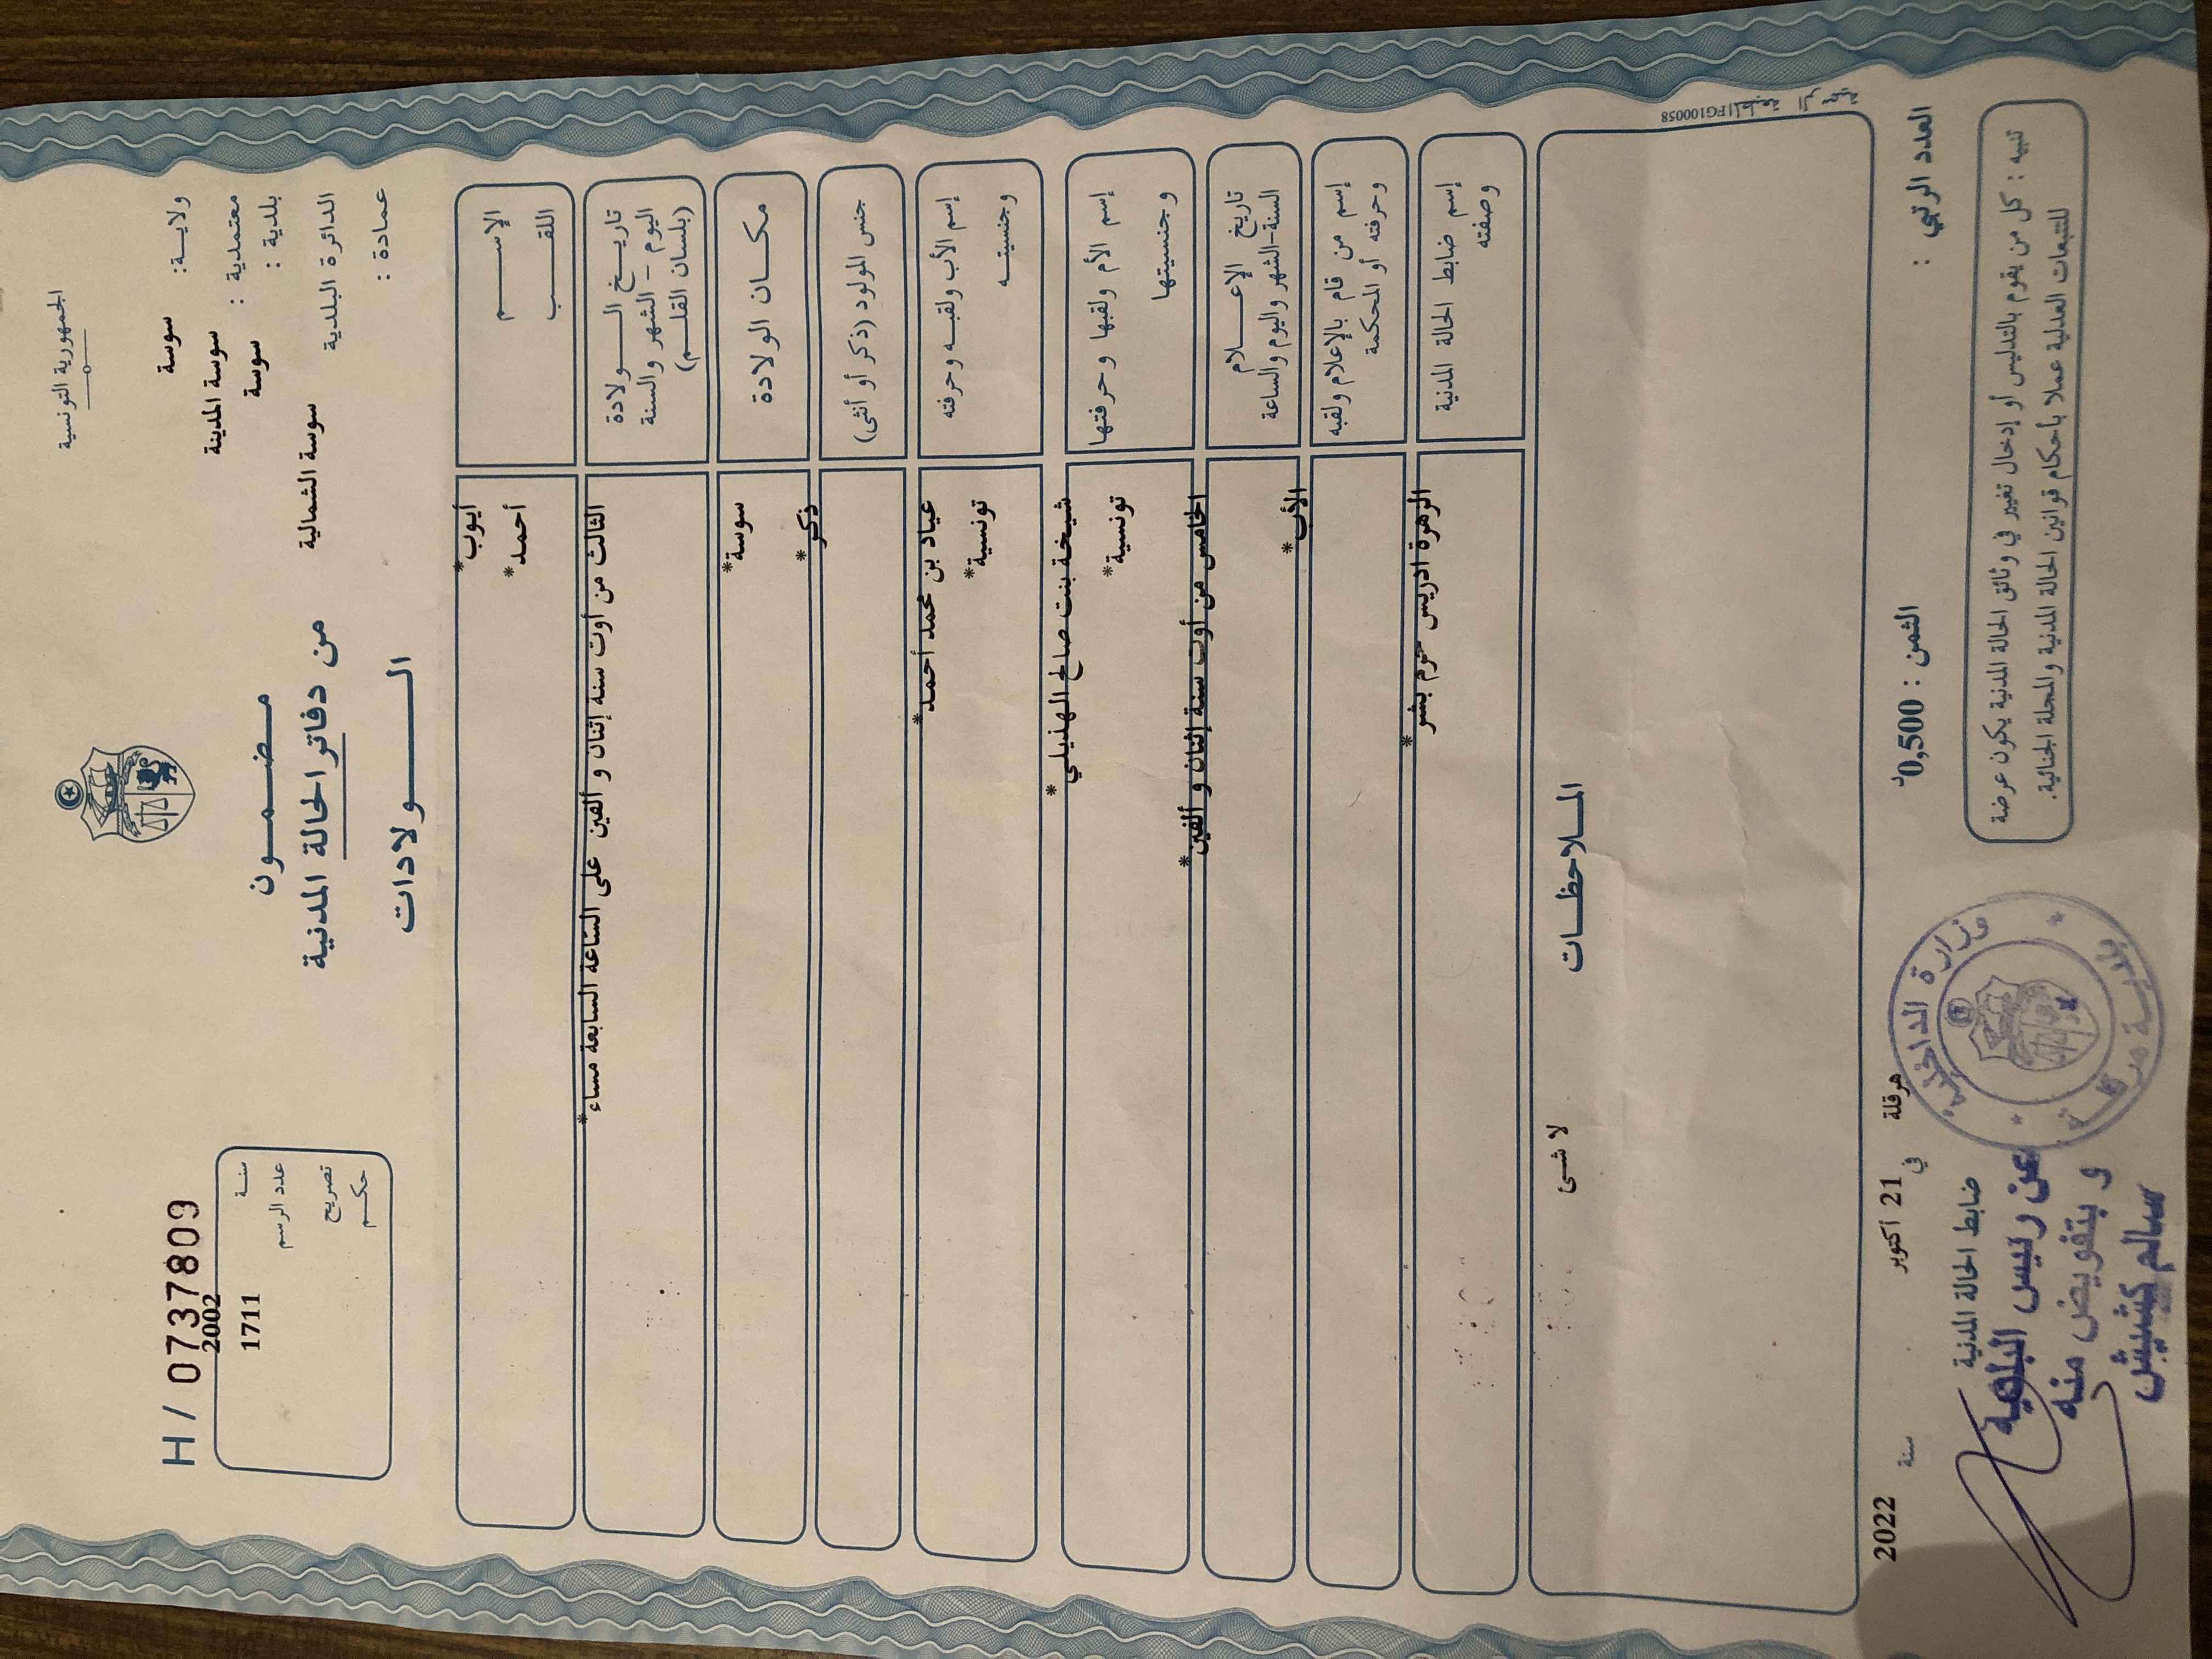 الجمهورية التونسية
ولاية: سوسة
معتمدية : سوسة المدينة
بلدية : سوسة
الدائرة البلدية سوسة الشمالية
عمادة :
مضمون
من دفاتر الحالة المدنية
الولادات
H / 0737809
سنة 2002
عدد الرسم 1711
تصريح
حكم
الإسم أيوب*
اللقب أحمد*
تاريخ الولادة
اليوم - الشهر والسنة
(بلسان القلم)
الثالث من أوت سنة إثنان و ألفين على الساعة السابعة مساء*
مكان الولادة سوسة*
جنس المولود (ذكر أو أنثى) ذكر*
إسم الأب ولقبه وحرفته عياد بن محمد أحمد*
وجنسيته تونسية*
إسم الأم ولقبها وحرفتها شيخة بنت صالح الهذيلي*
وجنسيتها تونسية*
تاريخ الإعلام
السنة-الشهر واليوم والساعة
الخامس من أوت سنة إثنان و ألفين*
إسم من قام بالإعلام ولقبه
وحرفته أو المحكمة
الأب*
إسم ضابط الحالة المدنية
وصفته
الزهرة ادريس حرم بشر*
الملاحظات
لا شئ
المطبعة الرسمية FG100058
العدد الرتبي :
الثمن : 0,500د
هرقلة في 21 أكتوبر سنة 2022
ضابط الحالة المدنية
تنبيه : كل من يقوم بالتدليس أو إدخال تغيير في وثائق الحالة المدنية يكون عرضة
للتتبعات العدلية عملا بأحكام قوانين الحالة المدنية والمجلة الجنائية.
وزارة الداخلية
بلدية هرقلة
عن رئيس البلدية
و بتفويض منه
سالم كشيش